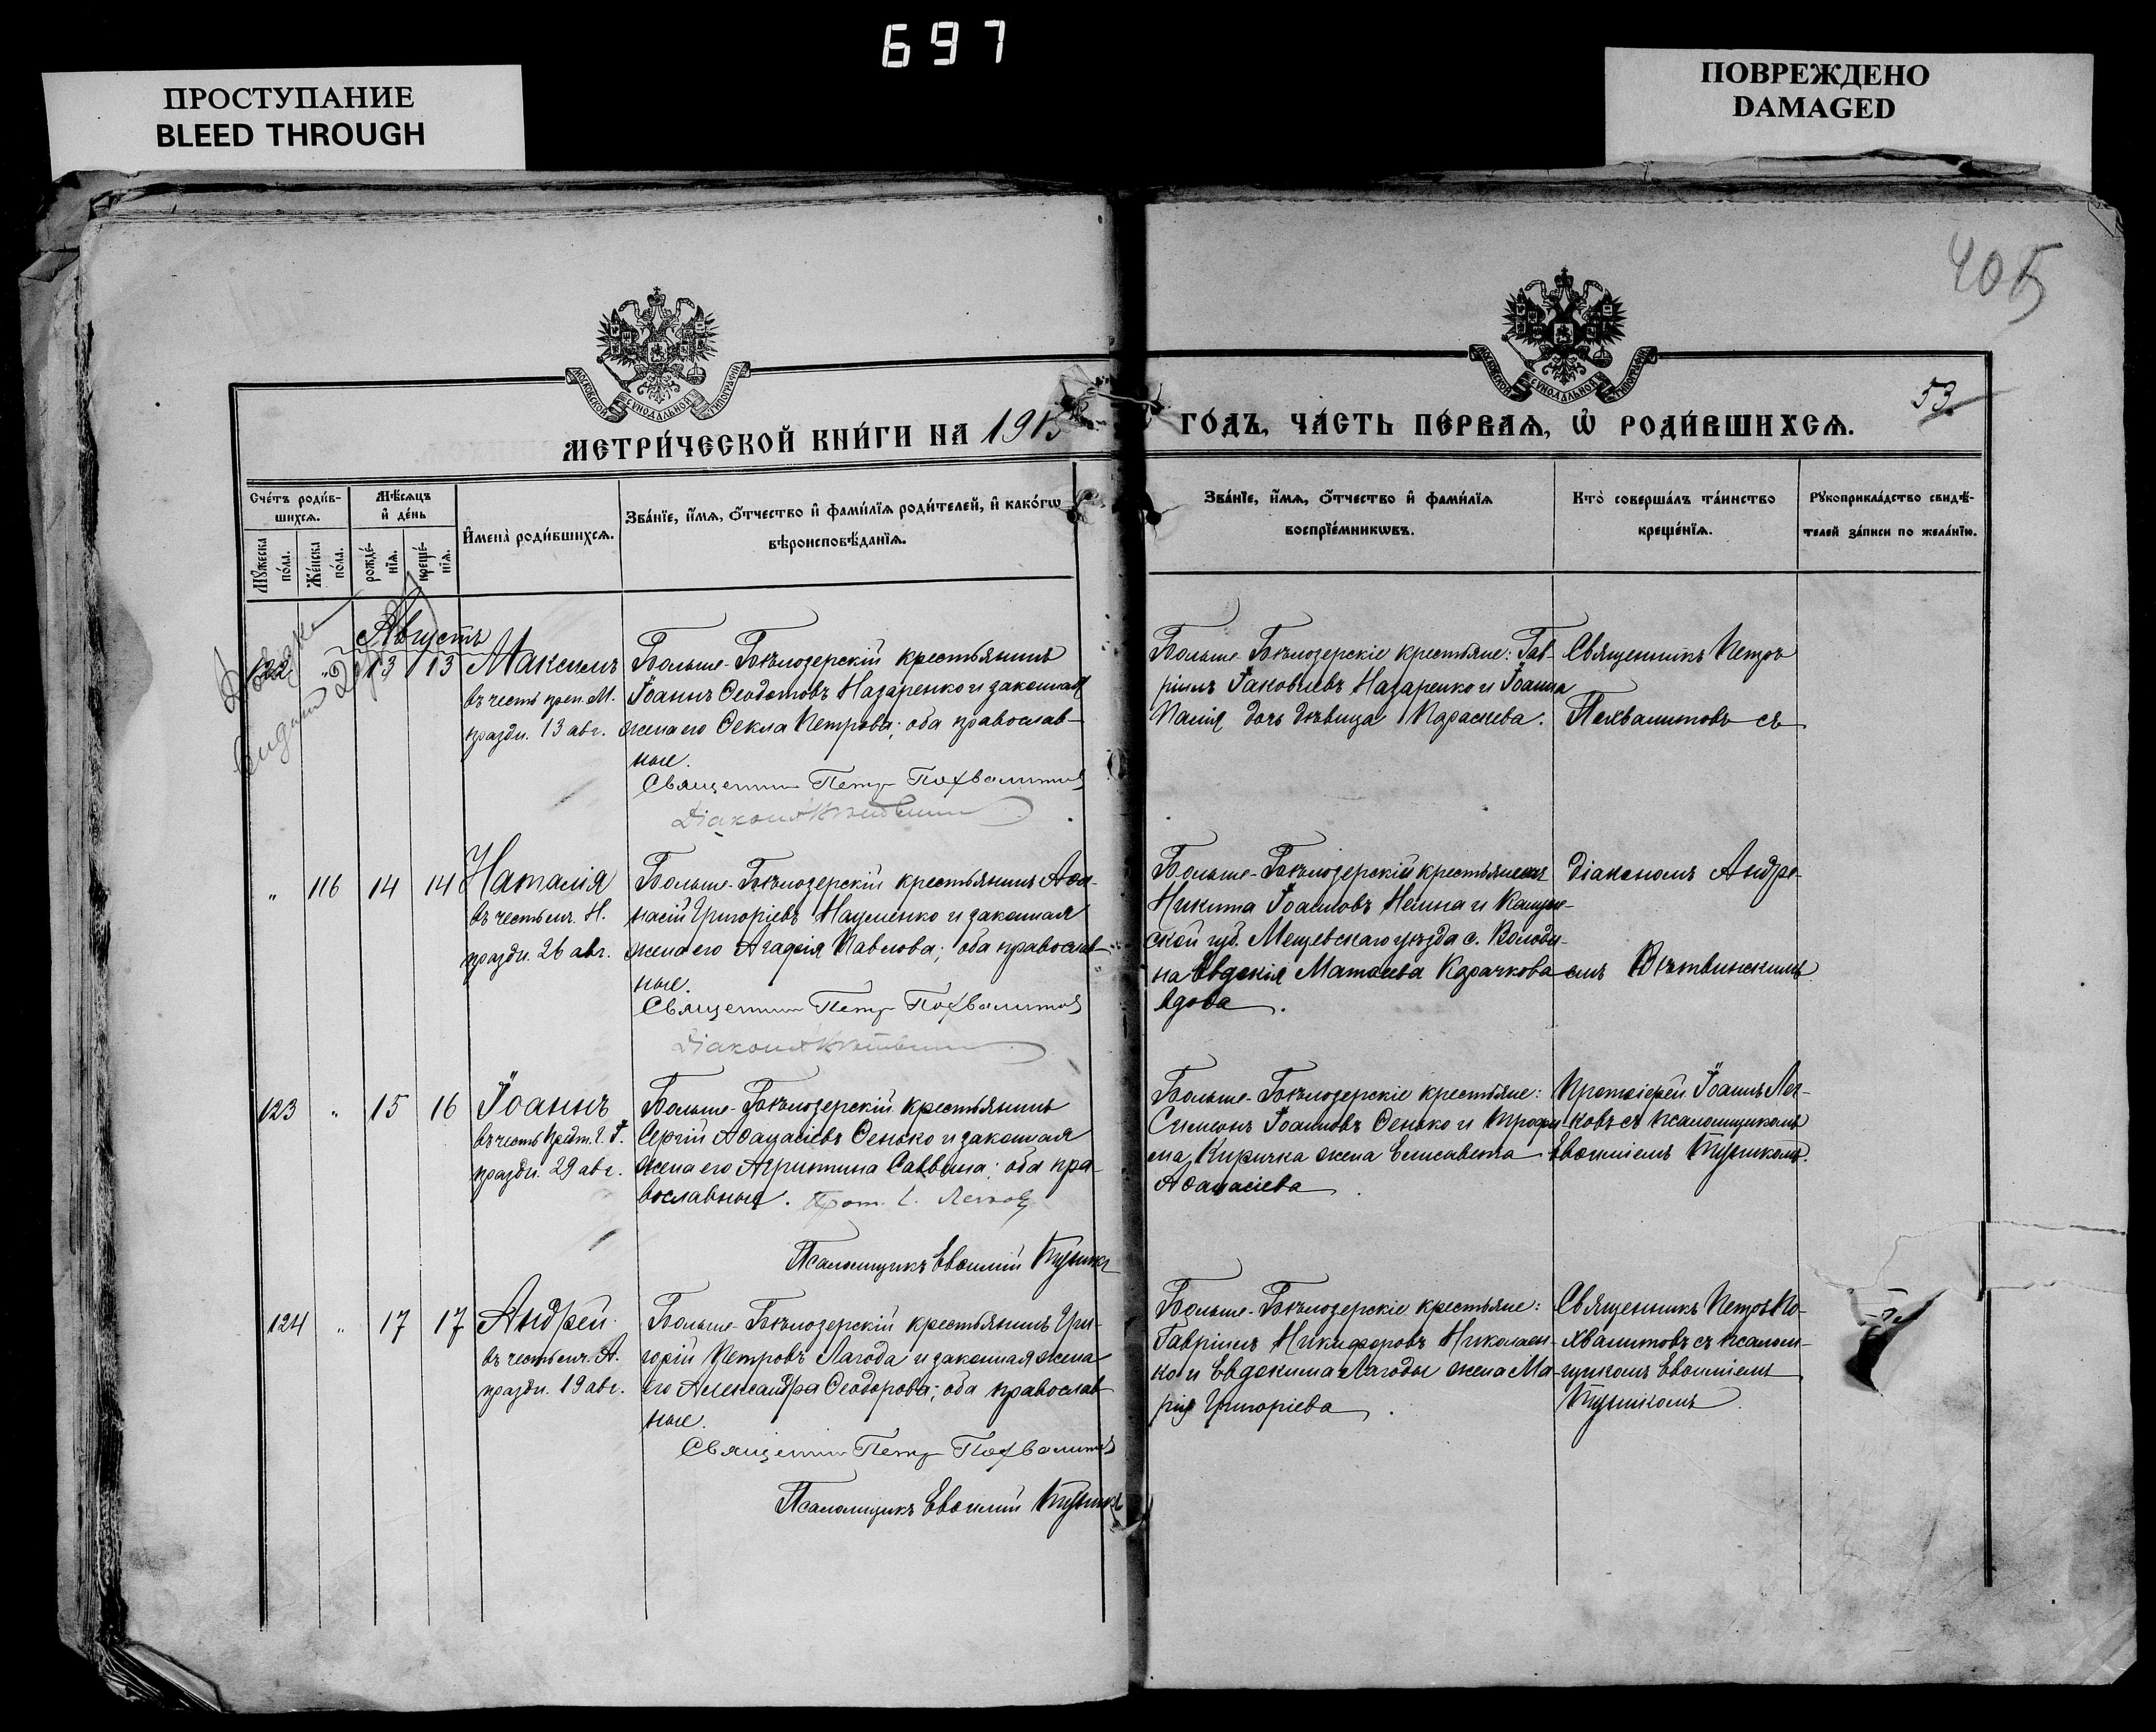 697
ПРОСТУПАНИЕ
BLEED THROUGH
ПОВРЕЖДЕНО
DAMAGED
405
53
МОСКОВСКОЙ СѴНОДАЛЬНОЙ ТИПОГРАФІИ
МЕТРИ́ЧЕСКОЙ КНИ́ГИ НА 1915
МОСКОВСКОЙ СѴНОДАЛЬНОЙ ТИПОГРАФІИ
ГО́ДЪ, ЧА́СТЬ ПЕ́РВАѦ, Ѡ҆ РОДИ́ВШИХСѦ.
Сче́тъ роди́в-
шихсѧ.
Мꙋ́жеска
по́ла.
Же́нска
по́ла.
Мѣ́сѧцъ
и҆ де́нь
рожде́-
нїѧ.
креще́-
нїѧ.
И҆мена̀ роди́вшихсѧ.
Зва́нїе, и҆́мѧ, ѻ҆́тчество и҆ фами́лїѧ роди́телей, и҆ како́гѡ
вѣроисповѣ́данїѧ.
Зва́нїе, и҆́мѧ, ѻ҆́тчество и҆ фами́лїѧ
воспрїе́мникѡвъ.
Кто̀ соверша́лъ та́инство
креще́нїѧ.
Рꙋкоприкла́дство свидѣ́-
телей за́писи по жела́нїю.
Августъ
122 " 13 13 Максимъ
въ честь преп. М.
праздн. 13 авг.
Больше-Бѣлозерскій крестьянинъ
Іоаннъ Ѳеодотовъ Назаренко и законная
жена его Ѳекла Петрова; оба православ-
ные.
Священник Петр Похвалитов
Діаконъ
Больше-Бѣлозерскіе крестьяне: Гав-
ріилъ Іаковлевъ Назаренко и Іоанна
дочь дѣвица Параскева.
Священникъ Петръ
Похвалитовъ съ
" 116 14 14 Наталія
въ честь мч. Н.
праздн. 26 авг.
Больше-Бѣлозерскій крестьянинъ Аѳа-
насій Григоріевъ Науменко и законная
жена его Агафія Павлова; оба православ-
ные.
Священник Петр Похвалитов
Діаконъ
Больше-Бѣлозерскій крестьянинъ
Никита Іоанновъ и Калуж-
ской губ. Мещевскаго уѣзда с. Володи-
на Евдокія Матѳеева Карачкова
вдова.
діакономъ Андре-
емъ Вѣтвинскимъ.
123 " 15 16 Іоаннъ
въ честь Крест. Г. І.
праздн. 29 авг.
Больше-Бѣлозерскій крестьянинъ
Сергій Аѳанасіевъ Сенько и законная
жена его Агриппина Саввина; оба пра-
вославные. Прот. І. Легков
Псаломщикъ Евѳимій
Больше-Бѣлозерскіе крестьяне:
Симеонъ Іоанновъ Сенько и Трофи-
ма Киричка жена Елисавета
Аѳанасіева
Протоіерей Іоаннъ Лег-
ковъ съ псаломщикомъ
Евѳиміемъ
124 " 17 17 Андрей
въ честь мч. А.
праздн. 19 авг.
Больше-Бѣлозерскій крестьянинъ Гри-
горій Петровъ Лагода и законная жена
его Александра Ѳеодорова; оба православ-
ные.
Священник Петр Похвалитов
Псаломщикъ Евѳимій
Больше-Бѣлозерскіе крестьяне:
Гавріилъ Никифоровъ Николаен-
ко и Евдокима Лагоды жена Ма-
рія Григоріева.
Священникъ Петръ По-
хвалитовъ съ псалом-
щикомъ Евѳиміемъ